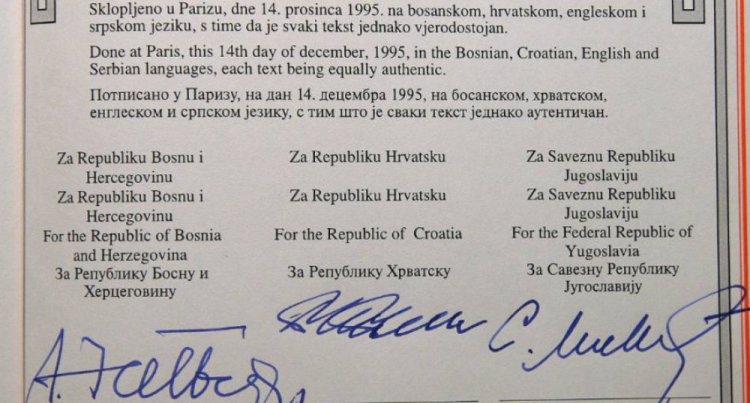 Sklopljeno u Parizu, dne 14. prosinca 1995. na bosanskom, hrvatskom, engleskom i
srpskom jeziku, s time da je svaki tekst jednako vjerodostojan.
Done at Paris, this 14th day of december, 1995, in the Bosnian, Croatian, English and
Serbian languages, each text being equally authentic.
Потписано у Паризу, на дан 14. децембра 1995, на босанском, хрватском,
енглеском и српском језику, с тим што је сваки текст једнако аутентичан.
Za Republiku Bosnu i
Hercegovinu
Za Republiku Bosnu i
Hercegovinu
For the Republic of Bosnia
and Herzegovina
За Републику Босну и
Херцеговину
Za Republiku Hrvatsku
Za Republiku Hrvatsku
For the Republic of Croatia
За Републику Хрватску
Za Saveznu Republiku
Jugoslaviju
Za Saveznu Republiku
Jugoslaviju
For the Federal Republic of
Yugoslavia
За Савезну Републику
Југославију